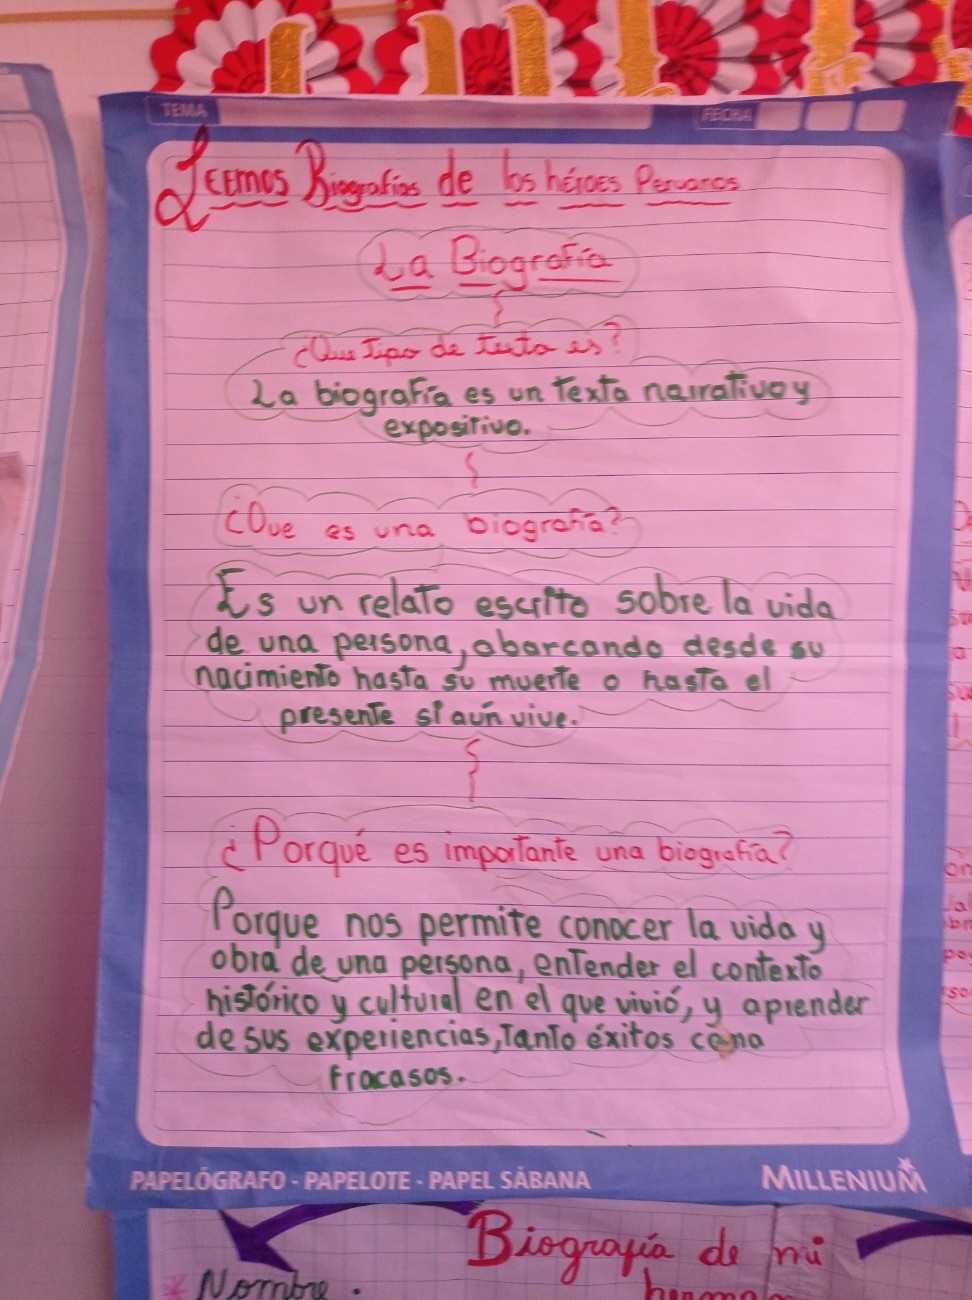 TEMA
FECHA
Leemos Biografías de los héroes Peruanos
La Biografía
¿Que Tipo de texto es?
La biografía es un Texto narrativo y
expositivo.
¿Que es una biografía?
Es un relato escrito sobre la vida
de una persona, abarcando desde su
nacimiento hasta su muerte o hasta el
presente si aún vive.
¿Porqué es importante una biografía?
Porque nos permite conocer la vida y
obra de una persona, entender el contexto
histórico y cultural en el que vivió, y aprender
de sus experiencias, Tanto éxitos como
fracasos.
PAPELÓGRAFO - PAPELOTE - PAPEL SÁBANA
MILLENIUM
Biografía de mi
Nombre.